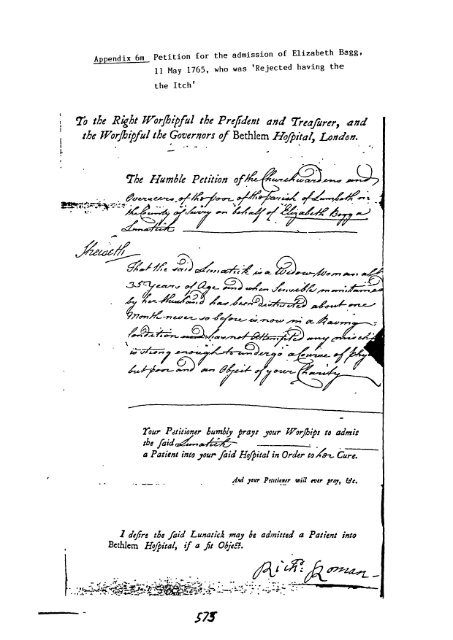 Appendix 6m Petition for the admission of Elizabeth Bagg,
11 May 1765, who was 'Rejected having the
the Itch'
To the Right Worſhipful the Preſident and Treaſurer, and
the Worſhipful the Governors of Bethlem Hoſpital, London.
The Humble Petition of the Churchwardens and
Overseers of the poor of the Parish of Lambeth in
the County of Surry on behalf of Elizabeth Bagg a
Lunatick
Sheweth
That the said Lunatick is a Widow Woman abt
35 Years of Age and when Sensible maintained
by her Husband has been distracted about one
Month never so before is now in a Raving
Condition and has not Attempted any mischief
is strong enough to undergo a Course of Phy
but poor and an Object of your Charity
Your Petitioner humbly prays your Worſhips to admit
the ſaid Lunatick
a Patient into your ſaid Hoſpital in Order to her Cure.
And your Petitioner will ever pray, &c.
I deſire the ſaid Lunatick may be admitted a Patient into
Bethlem Hoſpital, if a fit Object.
Richd. Roman
573